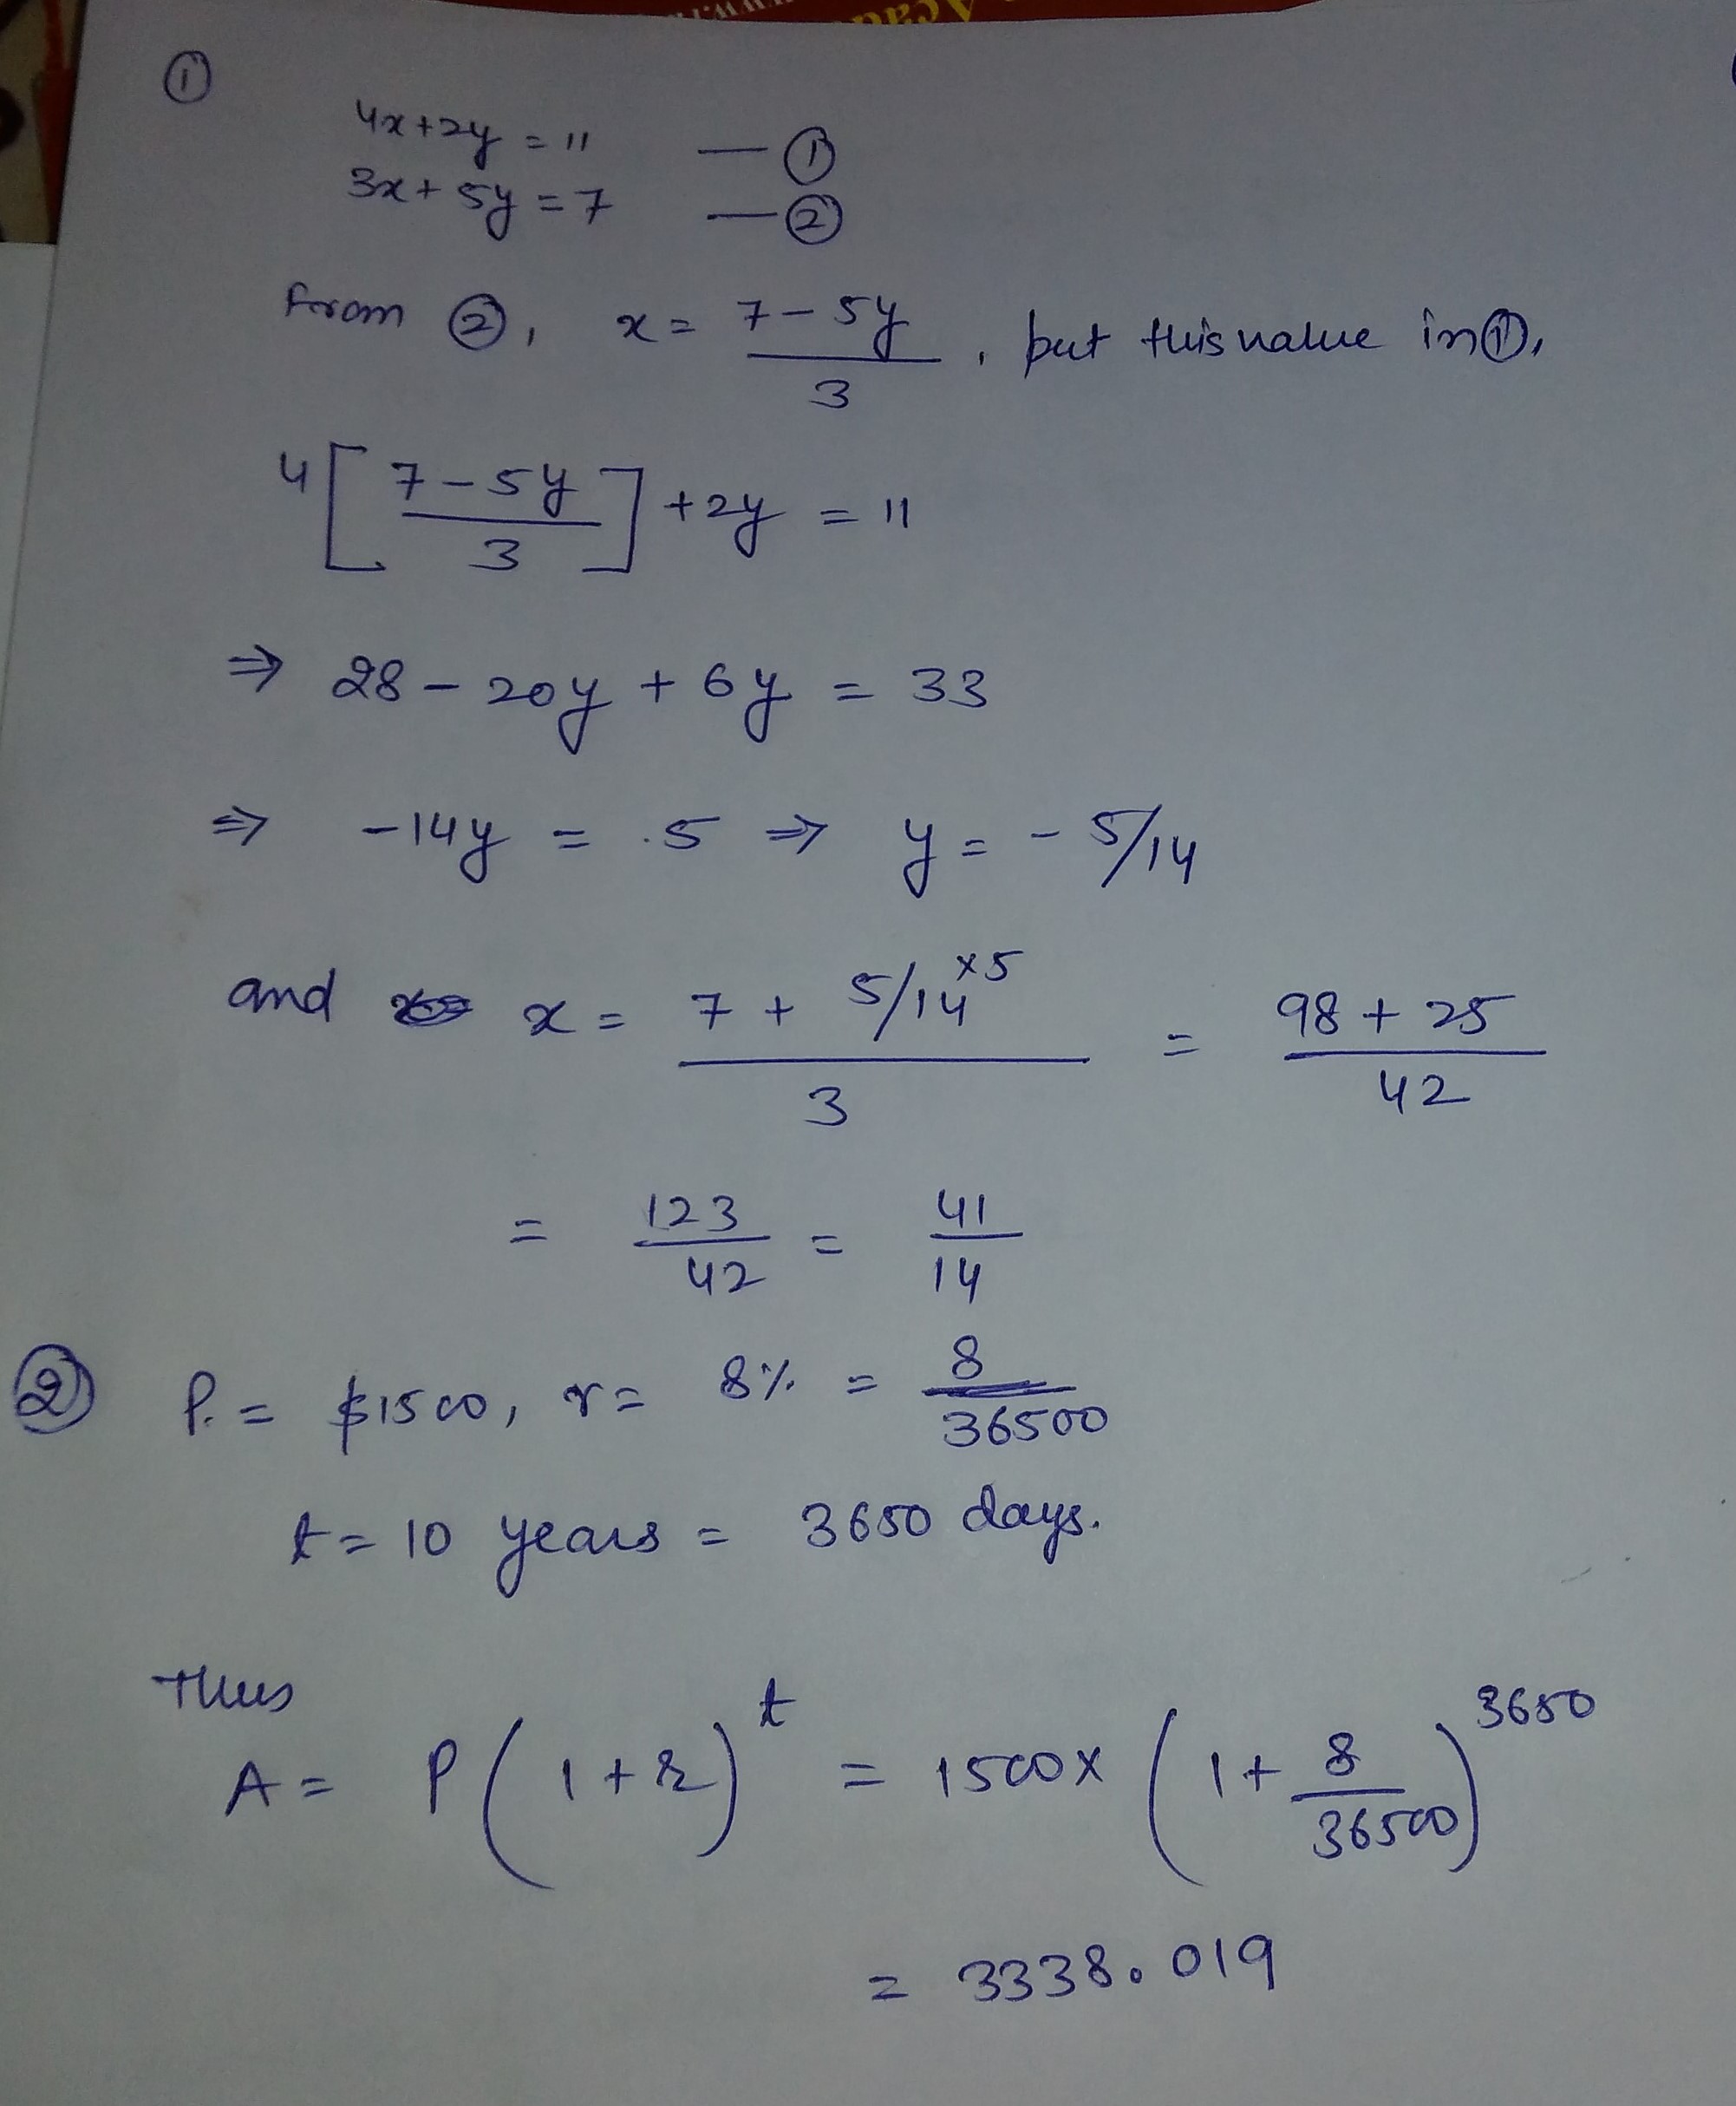 ①
4x+2y = 11 — ①
3x+5y = 7 — ②
From ②, x = 7-5y / 3, put this value in ①,
4 [ 7-5y / 3 ] + 2y = 11
⇒ 28 - 20y + 6y = 33
⇒ -14y = 5 ⇒ y = -5/14
and x = 7 + 5/14 ×5 / 3 = 98 + 25 / 42
= 123 / 42 = 41 / 14
② P. = $1500, r = 8% = 8 / 36500
t = 10 years = 3650 days.
Thus
A = P ( 1 + r )^t = 1500 × ( 1 + 8 / 36500 )^3650
= 3338.019